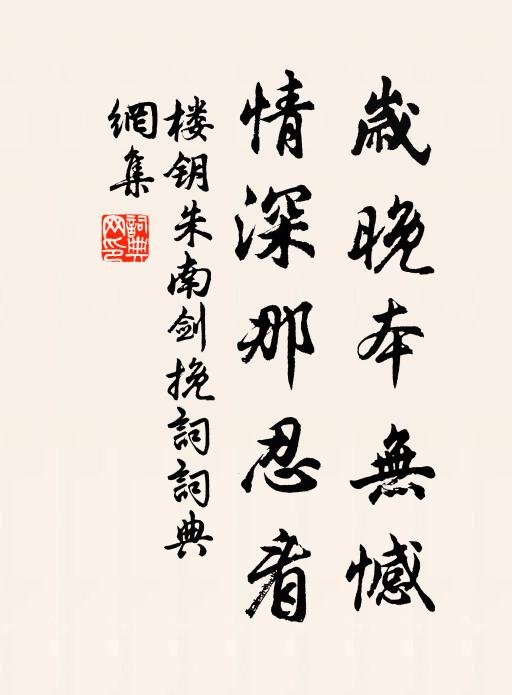 歲晚本無憾
情深那忍看
楼钥朱南剑挽詞詞典
網集
詞典
网印